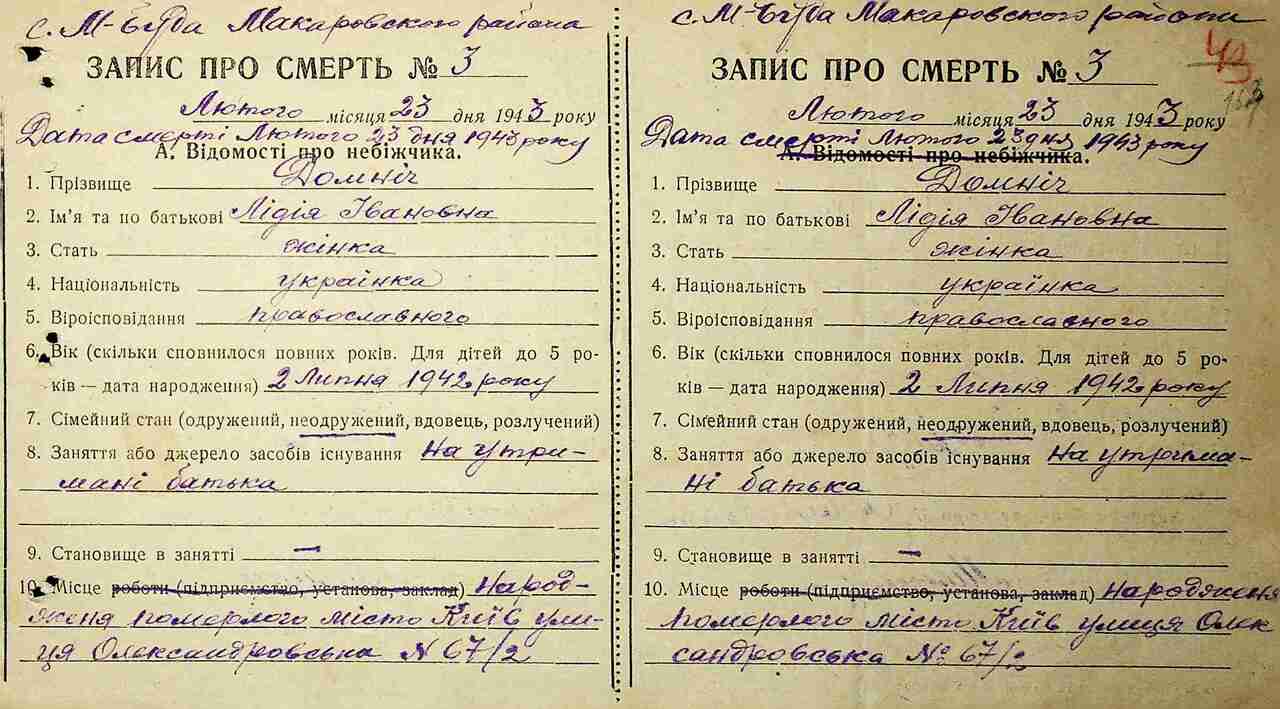 с. М-Буда Макаровского района
ЗАПИС ПРО СМЕРТЬ № 3
Лютого місяця 23 дня 1943 року
Дата смерті Лютого 23 дня 1943 року
А. Відомості про небіжчика.
1. Прізвище Домніч
2. Ім'я та по батькові Лідія Івановна
3. Стать жінка
4. Національність українка
5. Віроісповідання православного
6. Вік (скільки сповнилося повних років. Для дітей до 5 ро-
ків — дата народження) 2 Липня 1942 року
7. Сімейний стан (одружений, неодружений, вдовець, розлучений)
8. Заняття або джерело засобів існування На утри-
мані батька
9. Становище в занятті —
10. Місце роботи (підприємство, установа, заклад) Народ-
женя померлого місто Київ ули-
ця Олександровська N 67/2
с. М-Буда Макаровского района
43
ЗАПИС ПРО СМЕРТЬ № 3
Лютого місяця 23 дня 1943 року
Дата смерті Лютого 23 дня 1943 року
А. Відомості про небіжчика.
1. Прізвище Домніч
2. Ім'я та по батькові Лідія Івановна
3. Стать жінка
4. Національність українка
5. Віроісповідання православного
6. Вік (скільки сповнилося повних років. Для дітей до 5 ро-
ків — дата народження) 2 Липня 1942 року
7. Сімейний стан (одружений, неодружений, вдовець, розлучений)
8. Заняття або джерело засобів існування На утрима-
ні батька
9. Становище в занятті —
10. Місце роботи (підприємство, установа, заклад) Народженя
померлого місто Київ улиця Олек
сандровська № 67/2